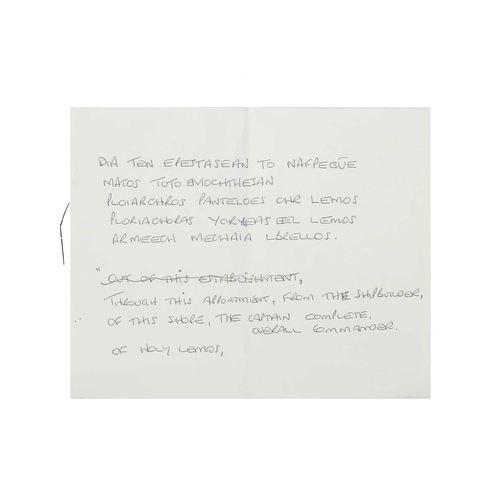 DIA TEN EPEJTASEAN TO NAFPEGŪE
MATOS TOTO EMOCHTHEJAN
PLOIARCHROS PANTELOES CHR LEMOS
PLORIACHORAS YORYEAS EEL LEMOS
ARMEECH MECHAIA LBRELLOS.
"OUT OF THIS ESTABLISHMENT,
THROUGH THIS APPOINTMENT, FROM THE SHIPBUILDER,
OF THIS SHORE, THE CAPTAIN COMPLETE,
OVERALL COMMANDER.
OF HOLY LEMOS,